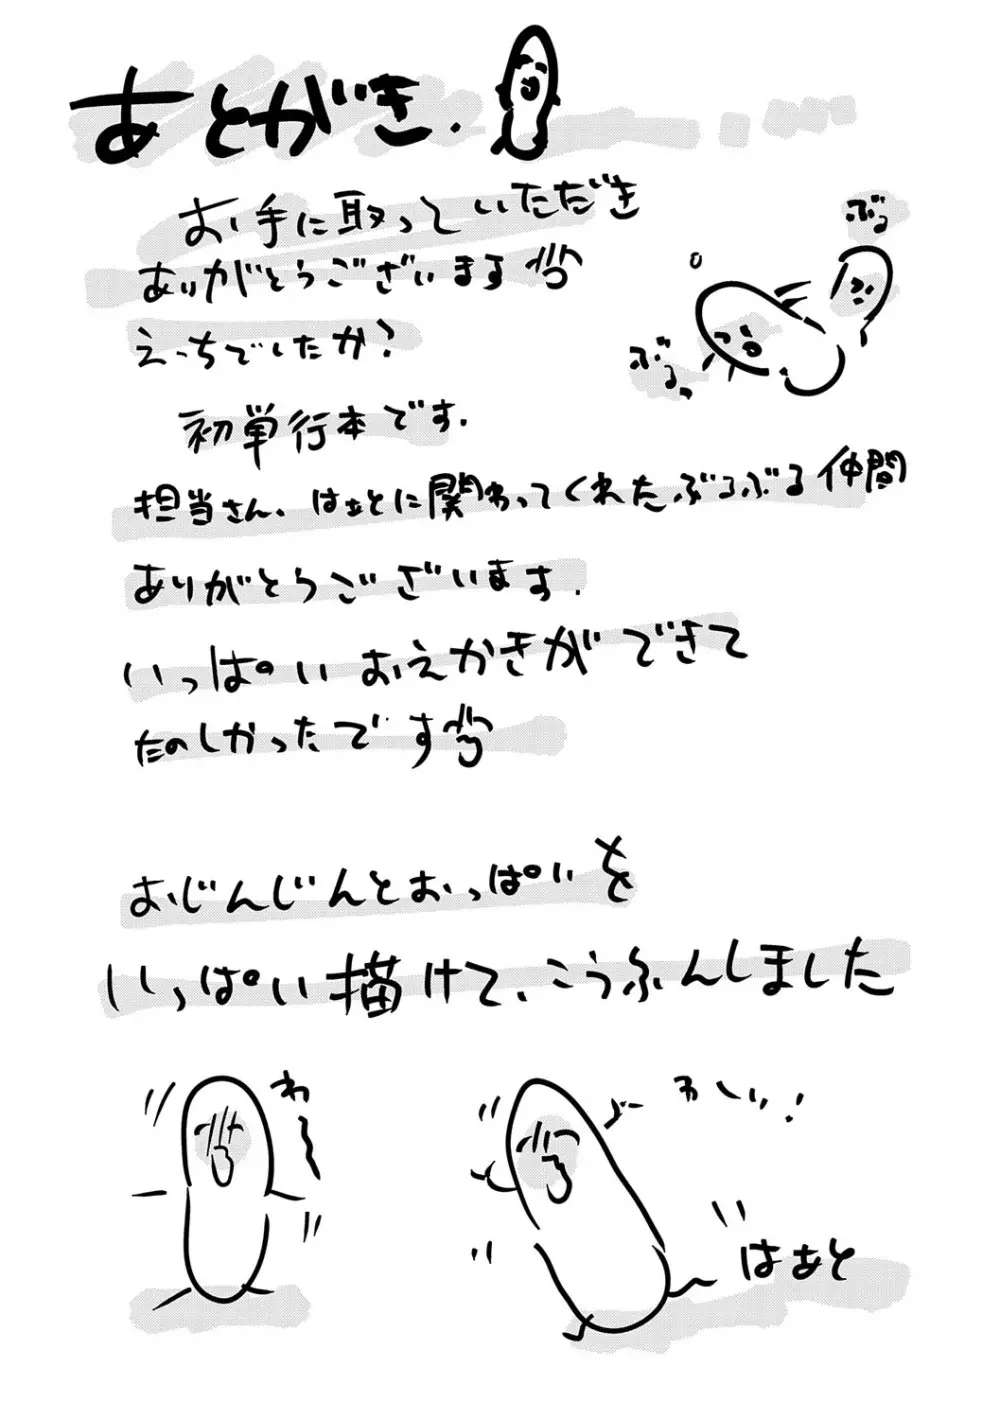 あとがき.
お手に取っていただき
ありがとうございます
えっちでしたか?
ぶる
ぶるっ
初単行本です.
担当さん、はぁとに関わってくれたぶるぶる仲間
ありがとうございます.
いっぱいおえかきができて
たのしかったです
おじんじんとおっぱいを
いっぱい描けて、こうふんしました
わ〜
わーいっ!
はぁと